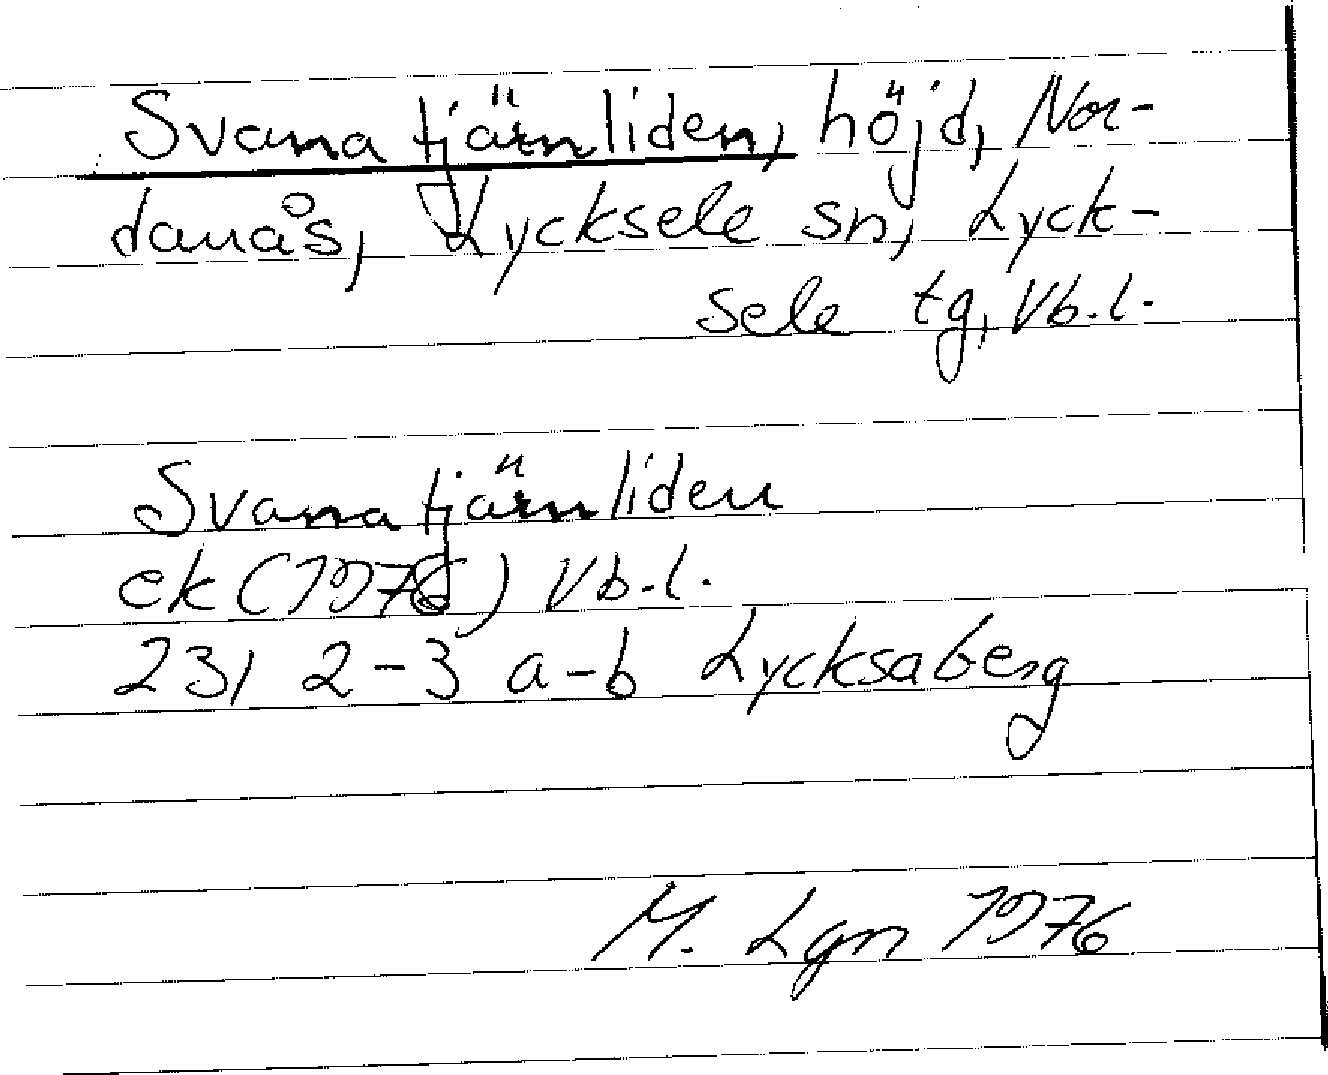 Svanatjärnliden, höjd, Nor-
danås, Lycksele sn, Lyck-
sele tg, Vb.l.
Svanatjärnliden
ek (1976) Vb.l.
23I 2-3 a-b Lycksaberg
M. Lgn 1976